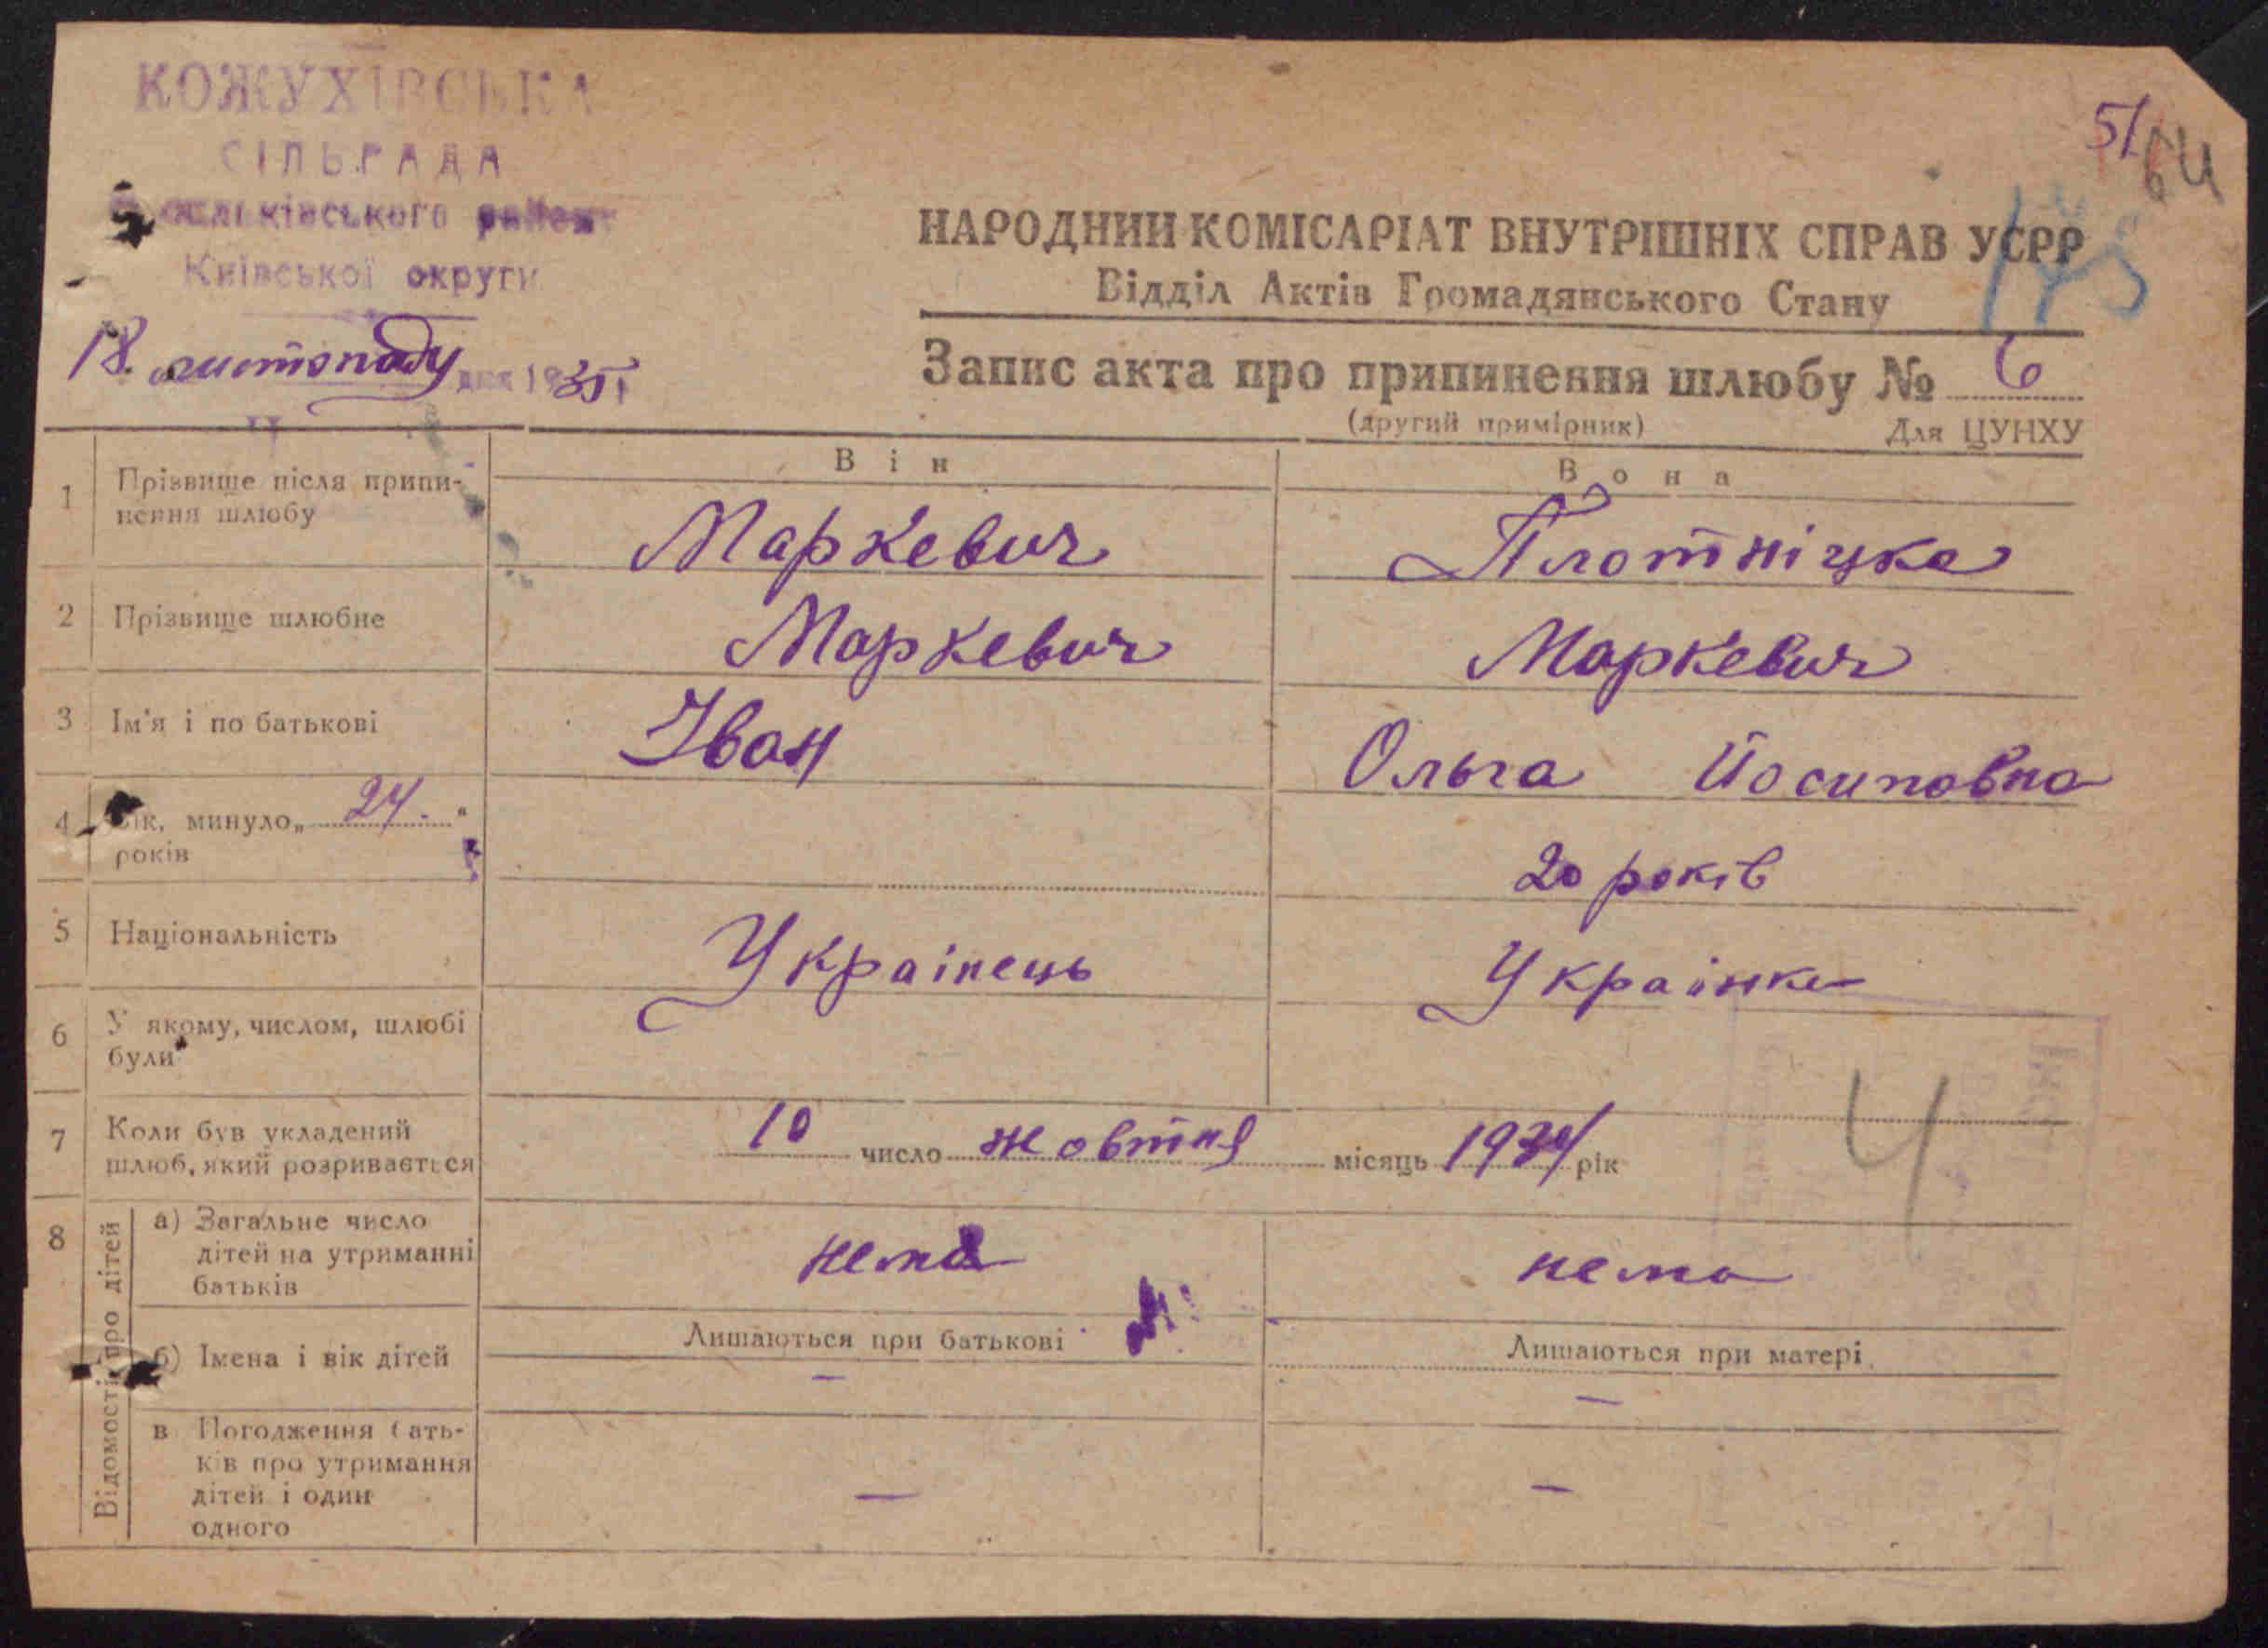 КОЖУХІВСЬКА
СІЛЬРАДА
району
Київської округи
18. листопаду дня 1935 г
51
64
НАРОДНИЙ КОМІСАРІАТ ВНУТРІШНІХ СПРАВ УСРР
Відділ Актів Громадянського Стану
Запис акта про припинення шлюбу № 6
(другий примірник) Для ЦУНХУ
Він Вона
1 Прізвище після припи-
нення шлюбу
Маркевич Плотніцка
2 Прізвище шлюбне Маркевич Маркевич
3 Ім'я і по батькові Іван Ольга Йосиповна
4 Вік, минуло „ 24. “
років
20 років
5 Національність Українець Українка
6 У якому, числом, шлюбі
були
7 Коли був укладений
шлюб, який розривається
10 число жовтня місяць 1934 рік
4
8 Відомості про дітей
а) Загальне число
дітей на утриманні
батьків
нема нема
Лишаються при батькові Лишаються при матері
б) Імена і вік дітей — —
в Погодження бать-
ків про утримання
дітей і один
одного
— —